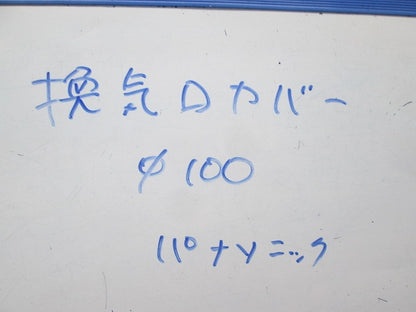 換気口カバー
φ100
パナソニック